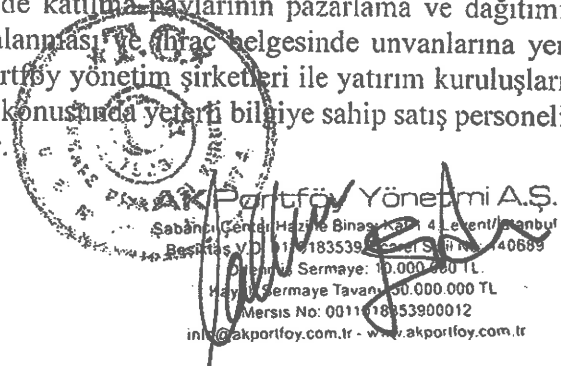 de katılma paylarının pazarlama ve dağıtımı
alanması ve ihraç belgesinde unvanlarına yer
ortföy yönetim şirketleri ile yatırım kuruluşları
konusunda yeterli bilgiye sahip satış personeli
T.C.
AK Portföy Yönetimi A.Ş.
Sabancı Center Hazine Binası Kat:1 4.Levent/İstanbul
Beşiktaş V.D. 183539 Ticaret Sicil No: 440689
Ödenmiş Sermaye: 10.000.000 TL.
Kayıtlı Sermaye Tavanı: 50.000.000 TL
Mersis No: 0011
info@akportfoy.com.tr - www.akportfoy.com.tr